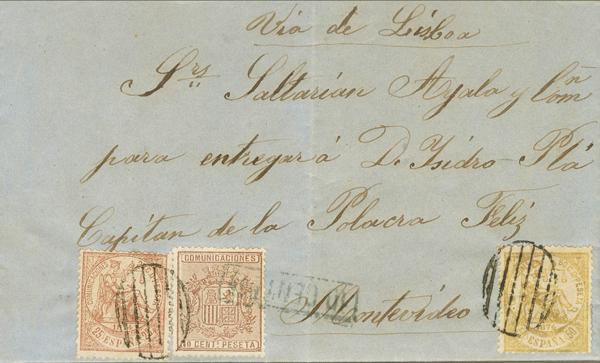 Via de Lisboa
Srs Saltarian Ayala y Comn
para entregar á D. Isidro Plá
Capitan de la Polacra Feliz
Montevideo
COMUNICACIONES
10 CENTS PESETA
ESPAÑA
ESPAÑA